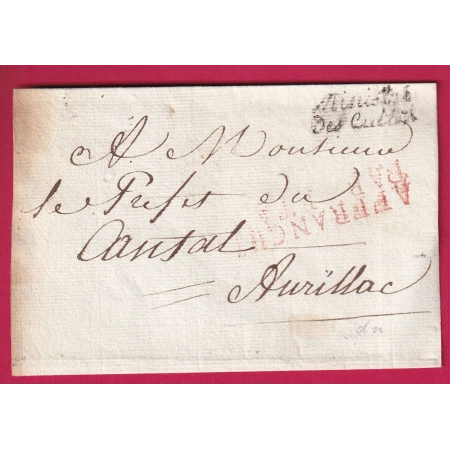 Ministre
Des Cultes
A Monsieur
le Prefet du
Cantal
Aurillac
AFFRANCHI
PAR
dn